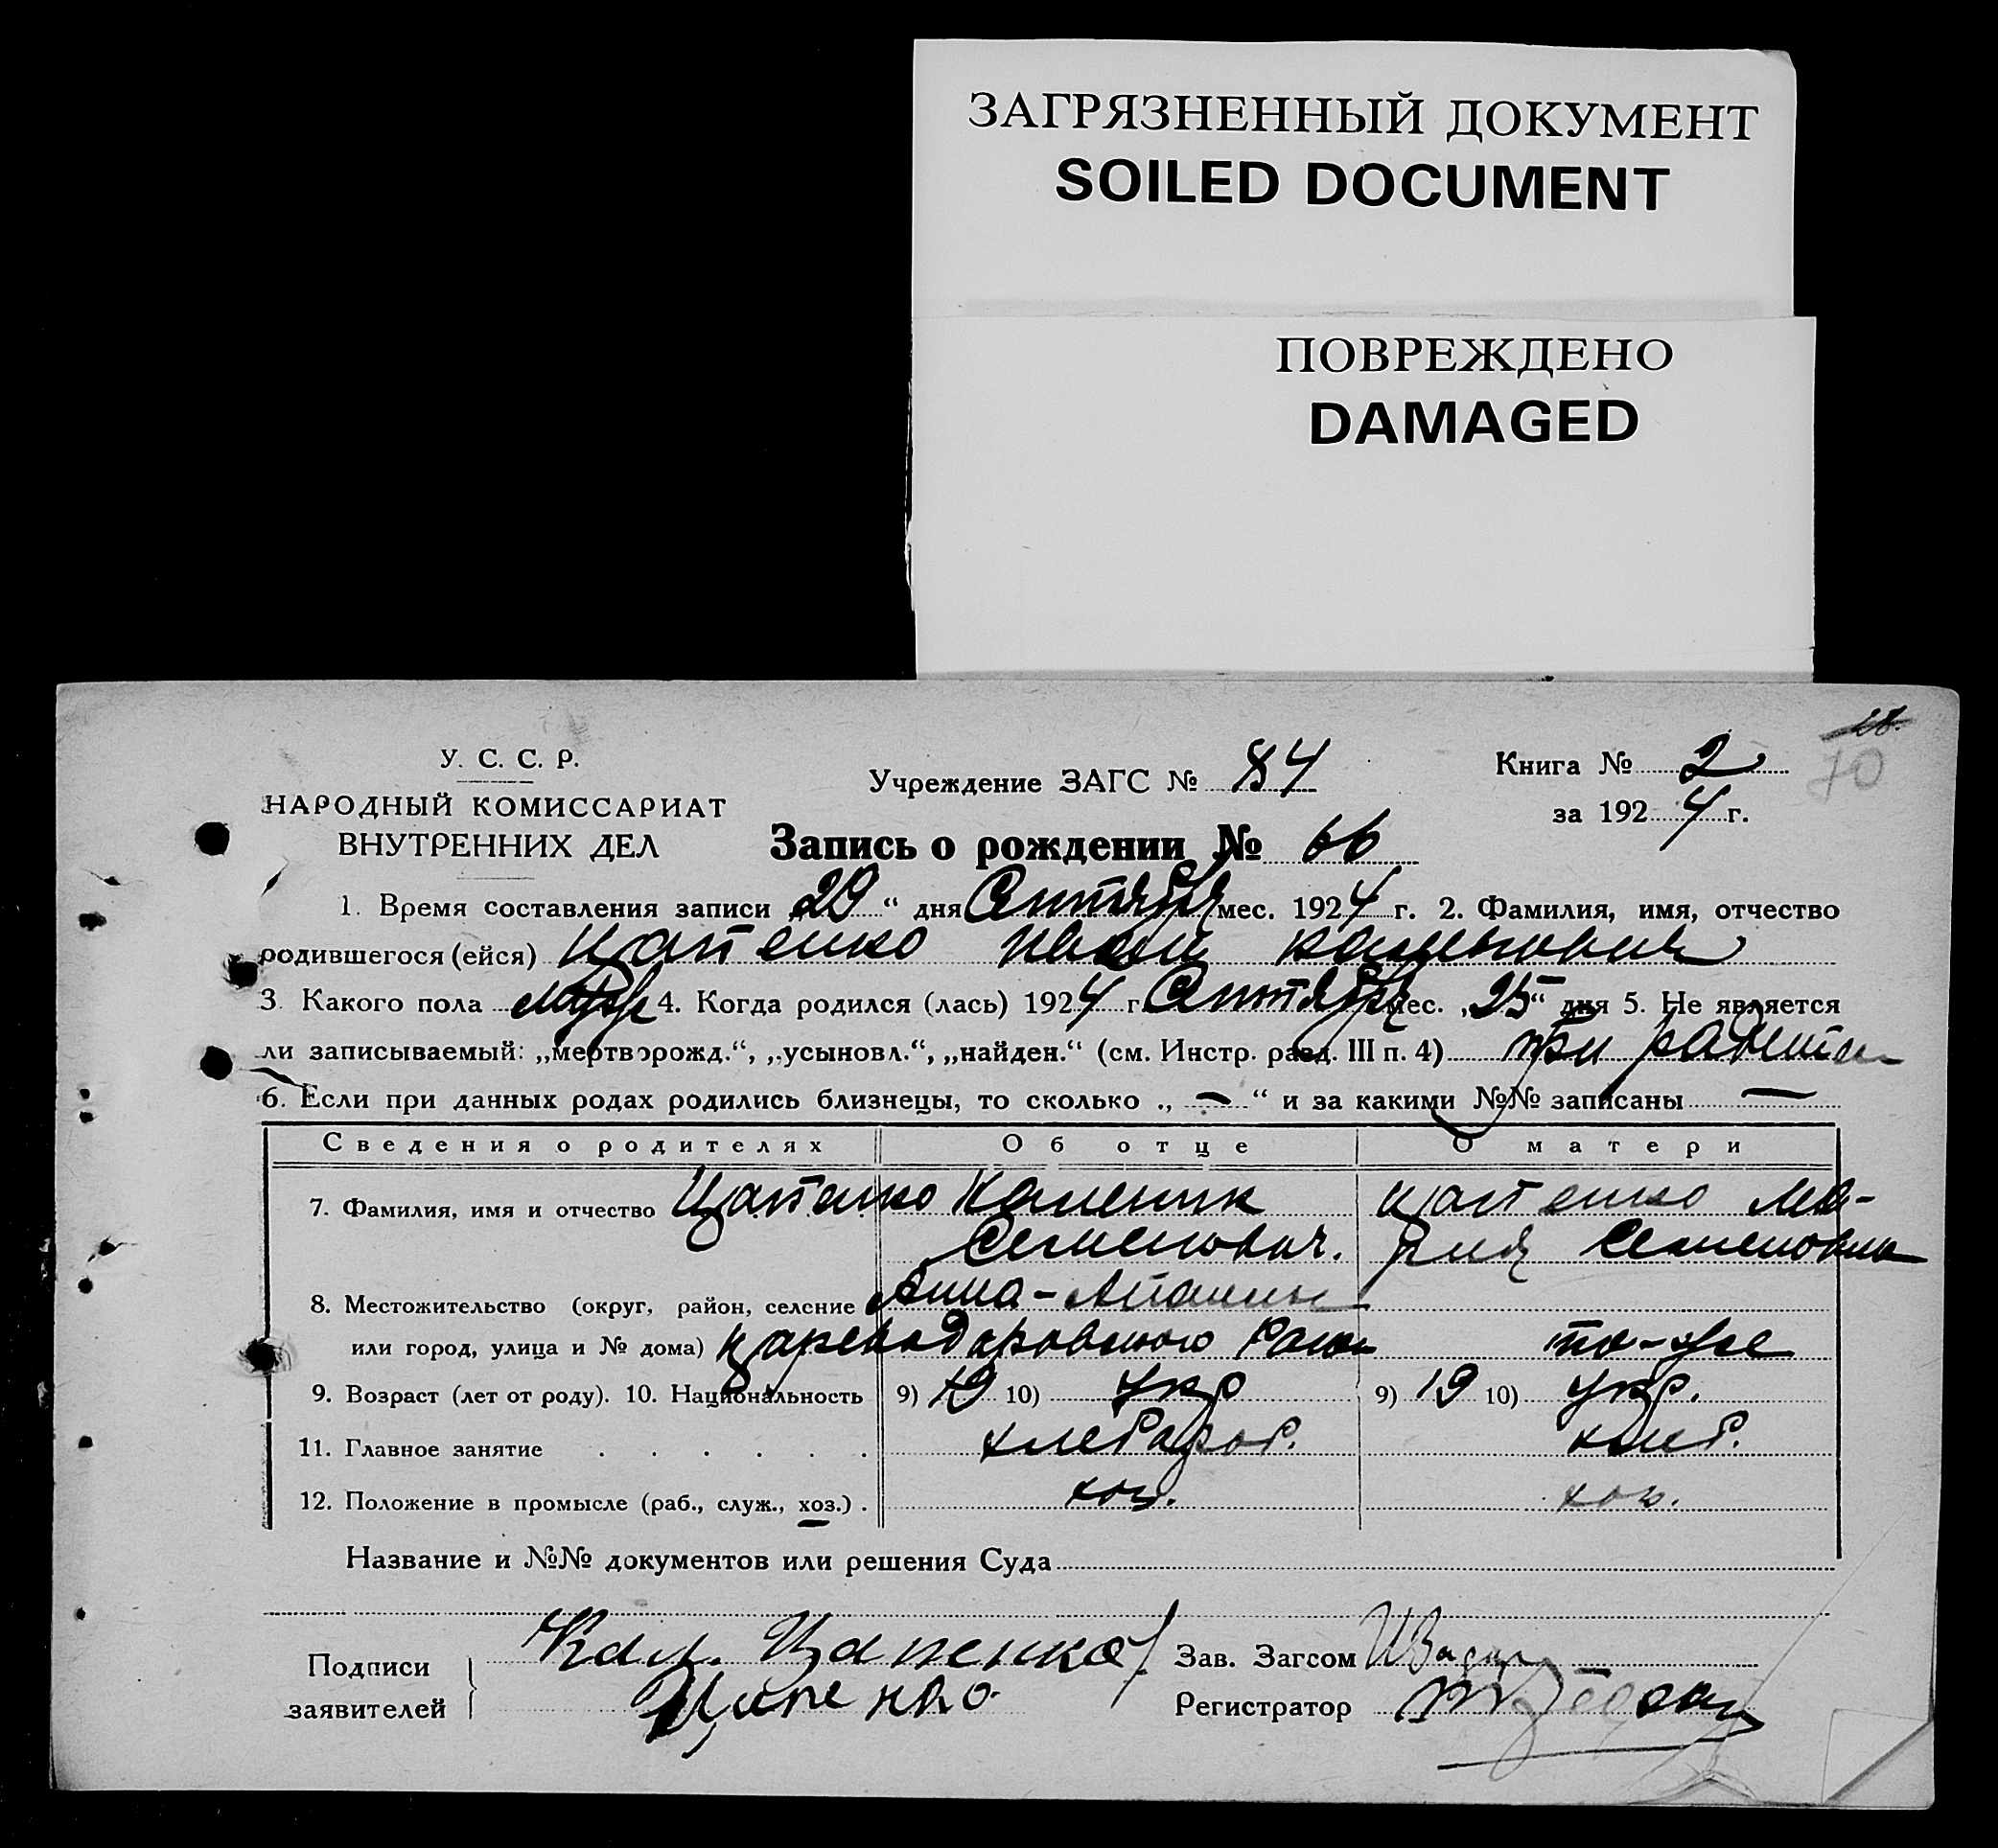 ЗАГРЯЗНЕННЫЙ ДОКУМЕНТ
SOILED DOCUMENT
ПОВРЕЖДЕНО
DAMAGED
У. С. С. Р.
НАРОДНЫЙ КОМИССАРИАТ
ВНУТРЕННИХ ДЕЛ
Учреждение ЗАГС № 84
Книга № 2
70
за 1924 г.
Запись о рождении № 66
1. Время составления записи „29“ дня Сентября мес. 1924 г. 2. Фамилия, имя, отчество
родившегося (ейся) Цапенко
3. Какого пола 4. Когда родился (лась) 1924 г. Сентября мес. „25“ дня 5. Не является
ли записываемый: „мертворожд.“, „усыновл.“, „найден.“ (см. Инстр. разд. III п. 4)
6. Если при данных родах родились близнецы, то сколько „—“ и за какими №№ записаны —
Сведения о родителях Об отце О матери
7. Фамилия, имя и отчество Цапенко Каленик Цапенко Ма-
Семенович. рия Семеновна
8. Местожительство (округ, район, селение
или город, улица и № дома) то-же
9. Возраст (лет от роду). 10. Национальность 9) 19 10) укр 9) 19 10) укр.
11. Главное занятие хлебороб. хлеб.
12. Положение в промысле (раб., служ., хоз.) . хоз. хоз.
Название и №№ документов или решения Суда
Подписи заявителей Кал. Цапенко
Цапенко
Зав. Загсом
Регистратор